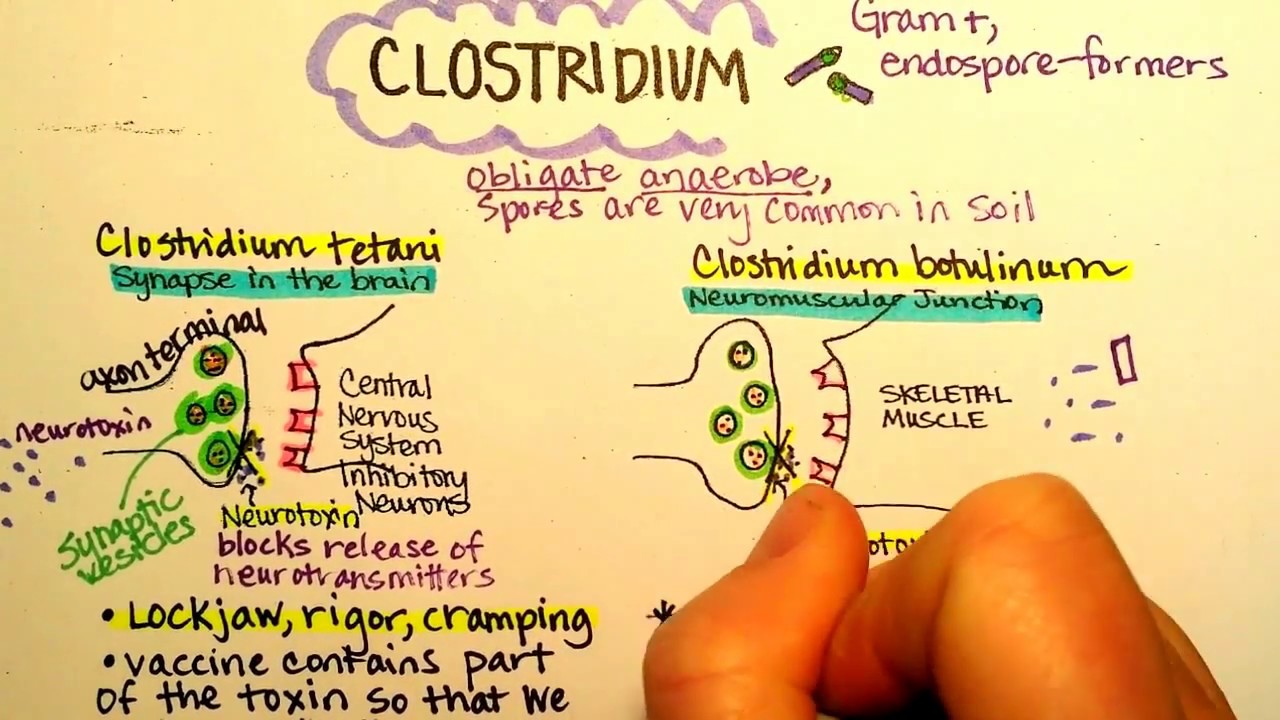 CLOSTRIDIUM
Gram +,
endospore-formers
obligate anaerobe,
Spores are very common in soil
Clostridium tetani
Synapse in the brain
axon terminal
neurotoxin
Synaptic
vesicles
Central
Nervous
System
Inhibitory
Neurons
Neurotoxin
blocks release of
neurotransmitters
• Lockjaw, rigor, cramping
• vaccine contains part
of the toxin so that we
Clostridium botulinum
Neuromuscular Junction
SKELETAL
MUSCLE